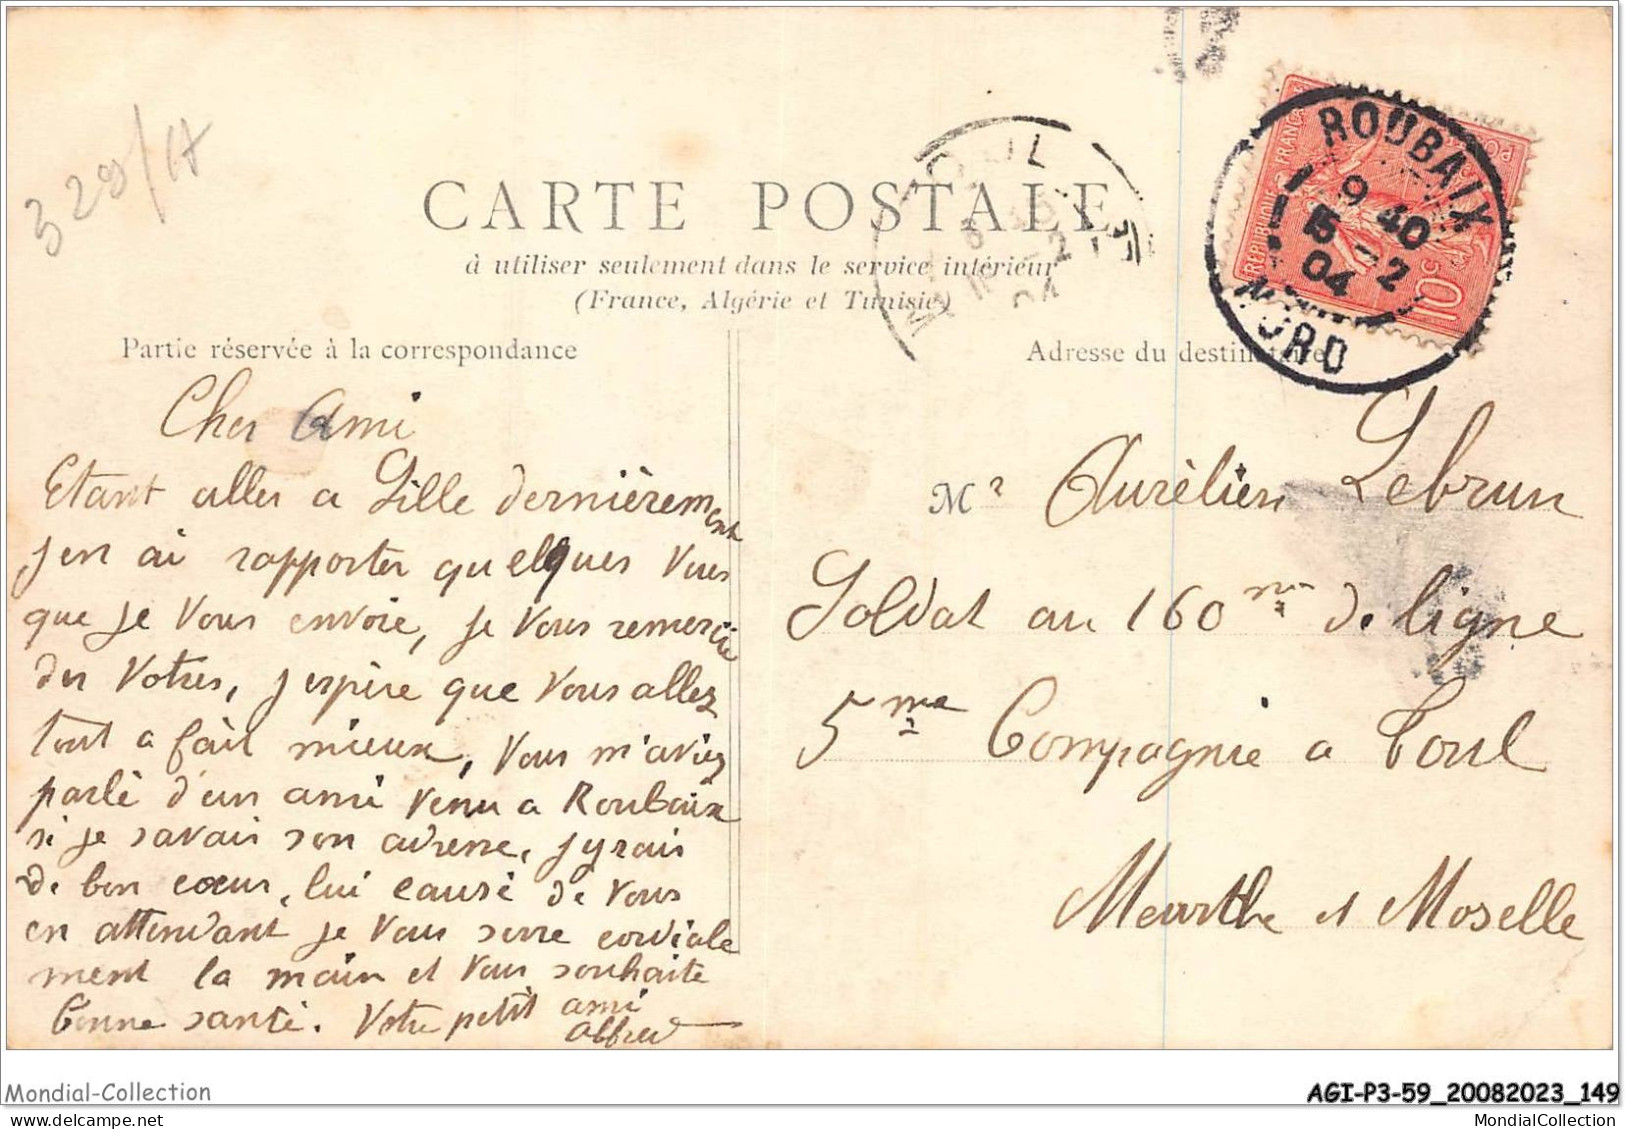 329/A
CARTE POSTALE
à utiliser seulement dans le service intérieur
(France, Algérie et Tunisie)
TOUL
04
ROUBAIX
9 40
15 - 2
04
NORD
REPUBLIQUE FRANCAISE
10c
Partie réservée à la correspondance
Adresse du destinataire
Cher Ami
Etant aller a Lille dernièrement
j'en ai rapporter quelques vues
que je vous envoie, je vous remercie
des votres, j'espère que vous allez
tout a fait mieux, vous m'aviez
parlé d'un ami venu a Roubaix
si je savais son adresse, j'yrais
de bon cœur, lui causé de vous
en attendant je vous serre cordiale
ment la main et vous souhaite
bonne santé. Votre petit ami
Mr Aurélien Lebrun
Soldat au 160me de ligne
5me Compagnie a Toul
Meurthe et Moselle
Mondial-Collection
AGI-P3-59_20082023_149
MondialCollection
MondialCollection